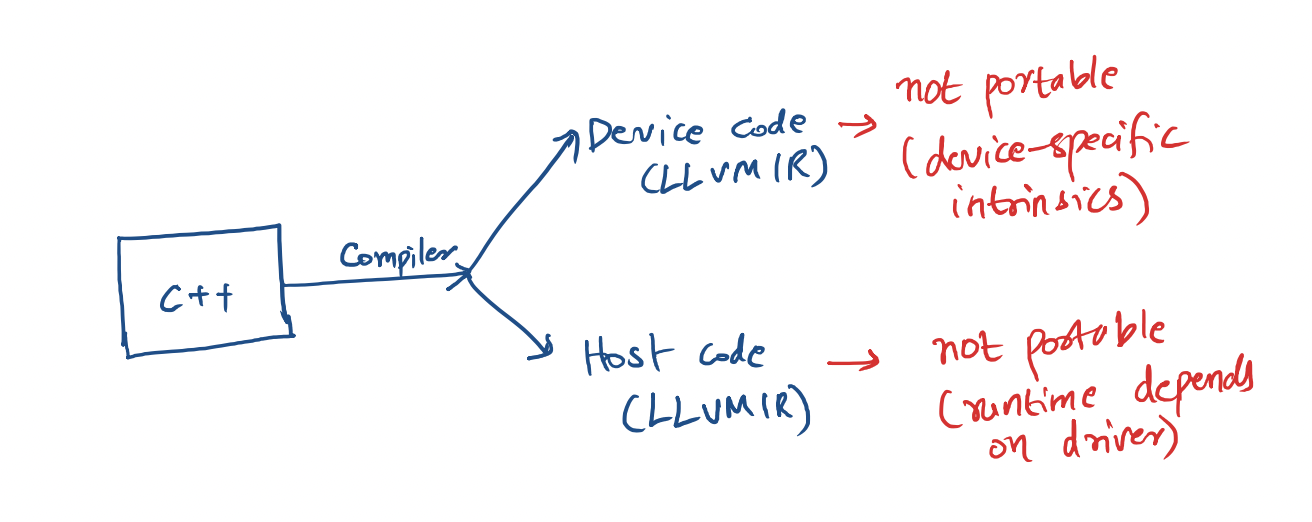 C++
Compiler
Device code
(LLVM IR)
not portable
(device-specific
intrinsics)
Host code
(LLVM IR)
not portable
(runtime depends
on driver)